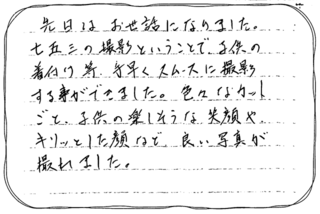 先日は お世話になりました。
七五三の撮影ということで、子供の
着付け等、手早くスムーズに撮影
する事ができました。色々なカット
ごと、子供の楽しそうな笑顔や
キリッとした顔など 良い写真が
撮れました。